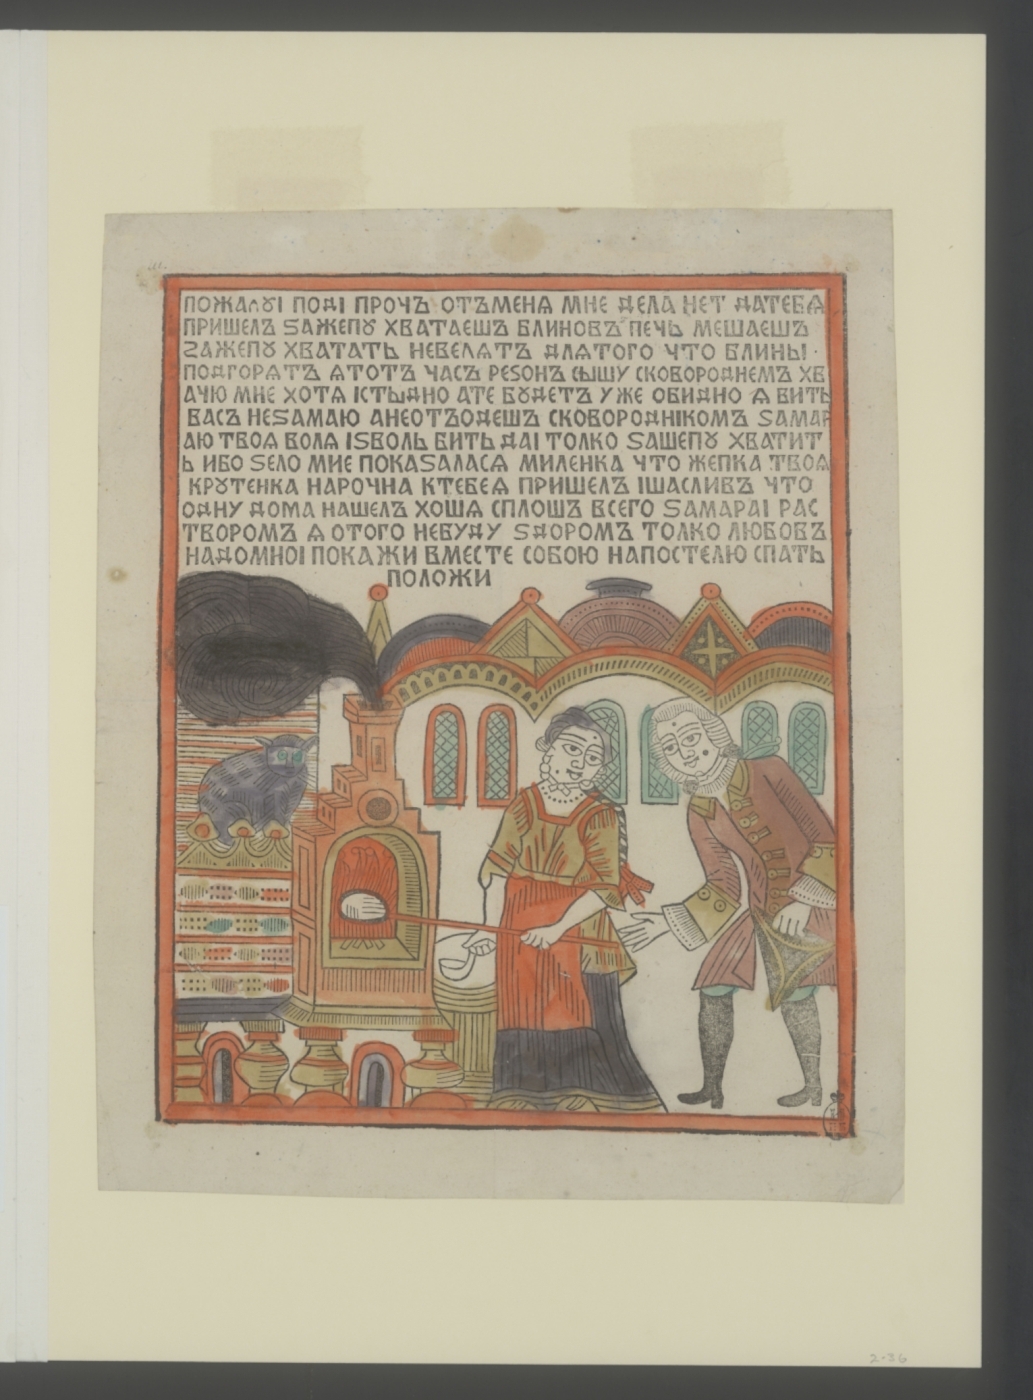 ПОЖАЛȢІ ПОДІ ПРОЧЪ ОТЪМЕНЯ МНЕ ДЕЛА НЕТ ДАТЕБЯ
ПРИШЕЛЪ ЅАЖЕПȢ ХВАТАЕШЪ БЛИНОВЪ ПЕЧЬ МЕШАЕШЪ
ЗАЖЕПȢ ХВАТАТЬ НЕВЕЛЯТЪ ДЛЯТОГО ЧТО БЛИНЫ
ПОДГОРЯТЪ ЯТОТЪ ЧАСЪ РЕЅОНЪ СЫЩУ СКОВОРОДНЕМЪ ХВ
АЧЮ МНЕ ХОТЯ ІСТЫДНО АТЕ БȢДЕТЪ УЖЕ ОБИДНО Я БИТЬ
ВАСЪ НЕЅАМАЮ АНЕОТЪОДЕШЪ СКОВОРОДНІКОМЪ ЅАМАР
АЮ ТВОЯ ВОЛЯ ІЅВОЛЬ БИТЬ ДАІ ТОЛКО ЅАЩЕПȢ ХВАТИТ
Ь ИБО ЅЕЛО МНЕ ПОКАЅАЛАСЯ МИЛЕНКА ЧТО ЖЕПКА ТВОЯ
КРȢТЕНКА НАРОЧНА КТЕБЕЯ ПРИШЕЛЪ ІЩАСЛИВЪ ЧТО
ОДНУ ДОМА НАШЕЛЪ ХОШЯ СПЛОШЪ ВСЕГО ЅАМАРАІ РАС
ТВОРОМЪ Я ОТОГО НЕБУДУ ЅДОРОМЪ ТОЛКО ЛЮБОВЪ
НАДОМНОІ ПОКАЖИ ВМЕСТЕ СОБОЮ НАПОСТЕЛЮ СПАТЬ
ПОЛОЖИ
2-36